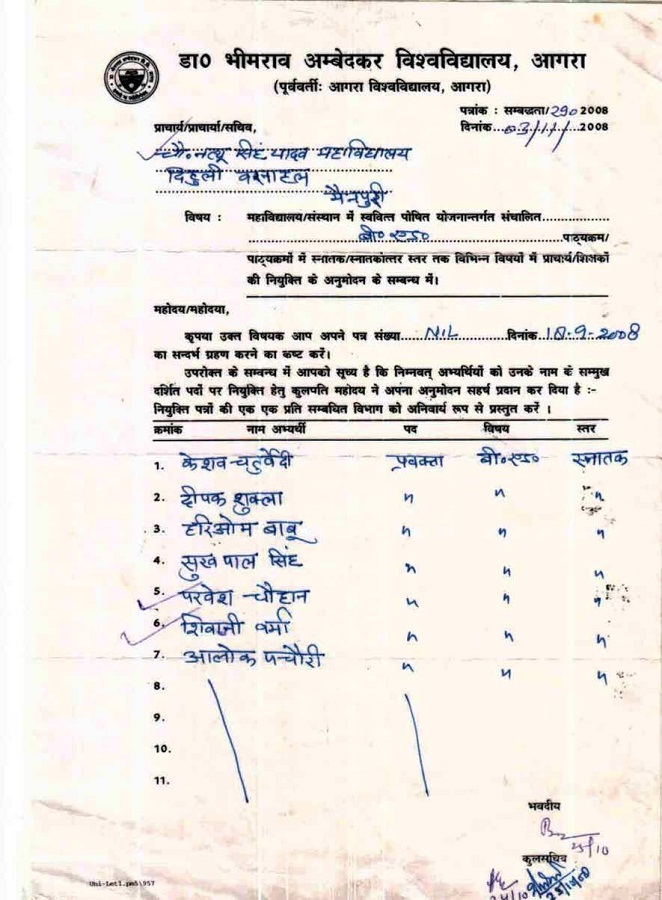 डा0 भीमराव अम्बेदकर विश्वविद्यालय, आगरा
(पूर्ववर्तीः आगरा विश्वविद्यालय, आगरा)
पत्रांक : सम्बद्धता/290 2008
प्राचार्य/प्राचार्या/सचिव,
दिनांक...03/11/....2008
चौ० नत्थू सिंह यादव महाविद्यालय
दिहुली बरनाहल
मैनपुरी
विषय : महाविद्यालय/संस्थान में स्ववित्त पोषित योजनान्तर्गत संचालित
बी० एड० पाठ्यक्रम/
पाठ्यक्रमों में स्नातक/स्नातकोत्तर स्तर तक विभिन्न विषयों में प्राचार्य/शिक्षकों
की नियुक्ति के अनुमोदन के सम्बन्ध में।
महोदय/महोदया,
कृपया उक्त विषयक आप अपने पत्र संख्या....NIL....दिनांक..18-9-2008
का सन्दर्भ ग्रहण करने का कष्ट करें।
उपरोक्त के सम्बन्ध में आपको सूच्य है कि निम्नवत् अभ्यर्थियों को उनके नाम के सम्मुख
दर्शित पदों पर नियुक्ति हेतु कुलपति महोदय ने अपना अनुमोदन सहर्ष प्रदान कर दिया है :-
नियुक्ति पत्रों की एक एक प्रति सम्बधित विभाग को अनिवार्य रूप से प्रस्तुत करें ।
क्रमांक नाम अभ्यर्थी पद विषय स्तर
1. केशव चतुर्वेदी प्रवक्ता बी० एड० स्नातक
2. दीपक शुक्ला " " "
3. हरिओम बाबू " " "
4. सुखपाल सिंह " " "
5. परवेश चौहान " " "
6. शिवानी वर्मा " " "
7. आलोक पचौरी " " "
8.
9.
10.
11.
भवदीय
25/10
कुलसचिव
Uni-Let1.pm5\957